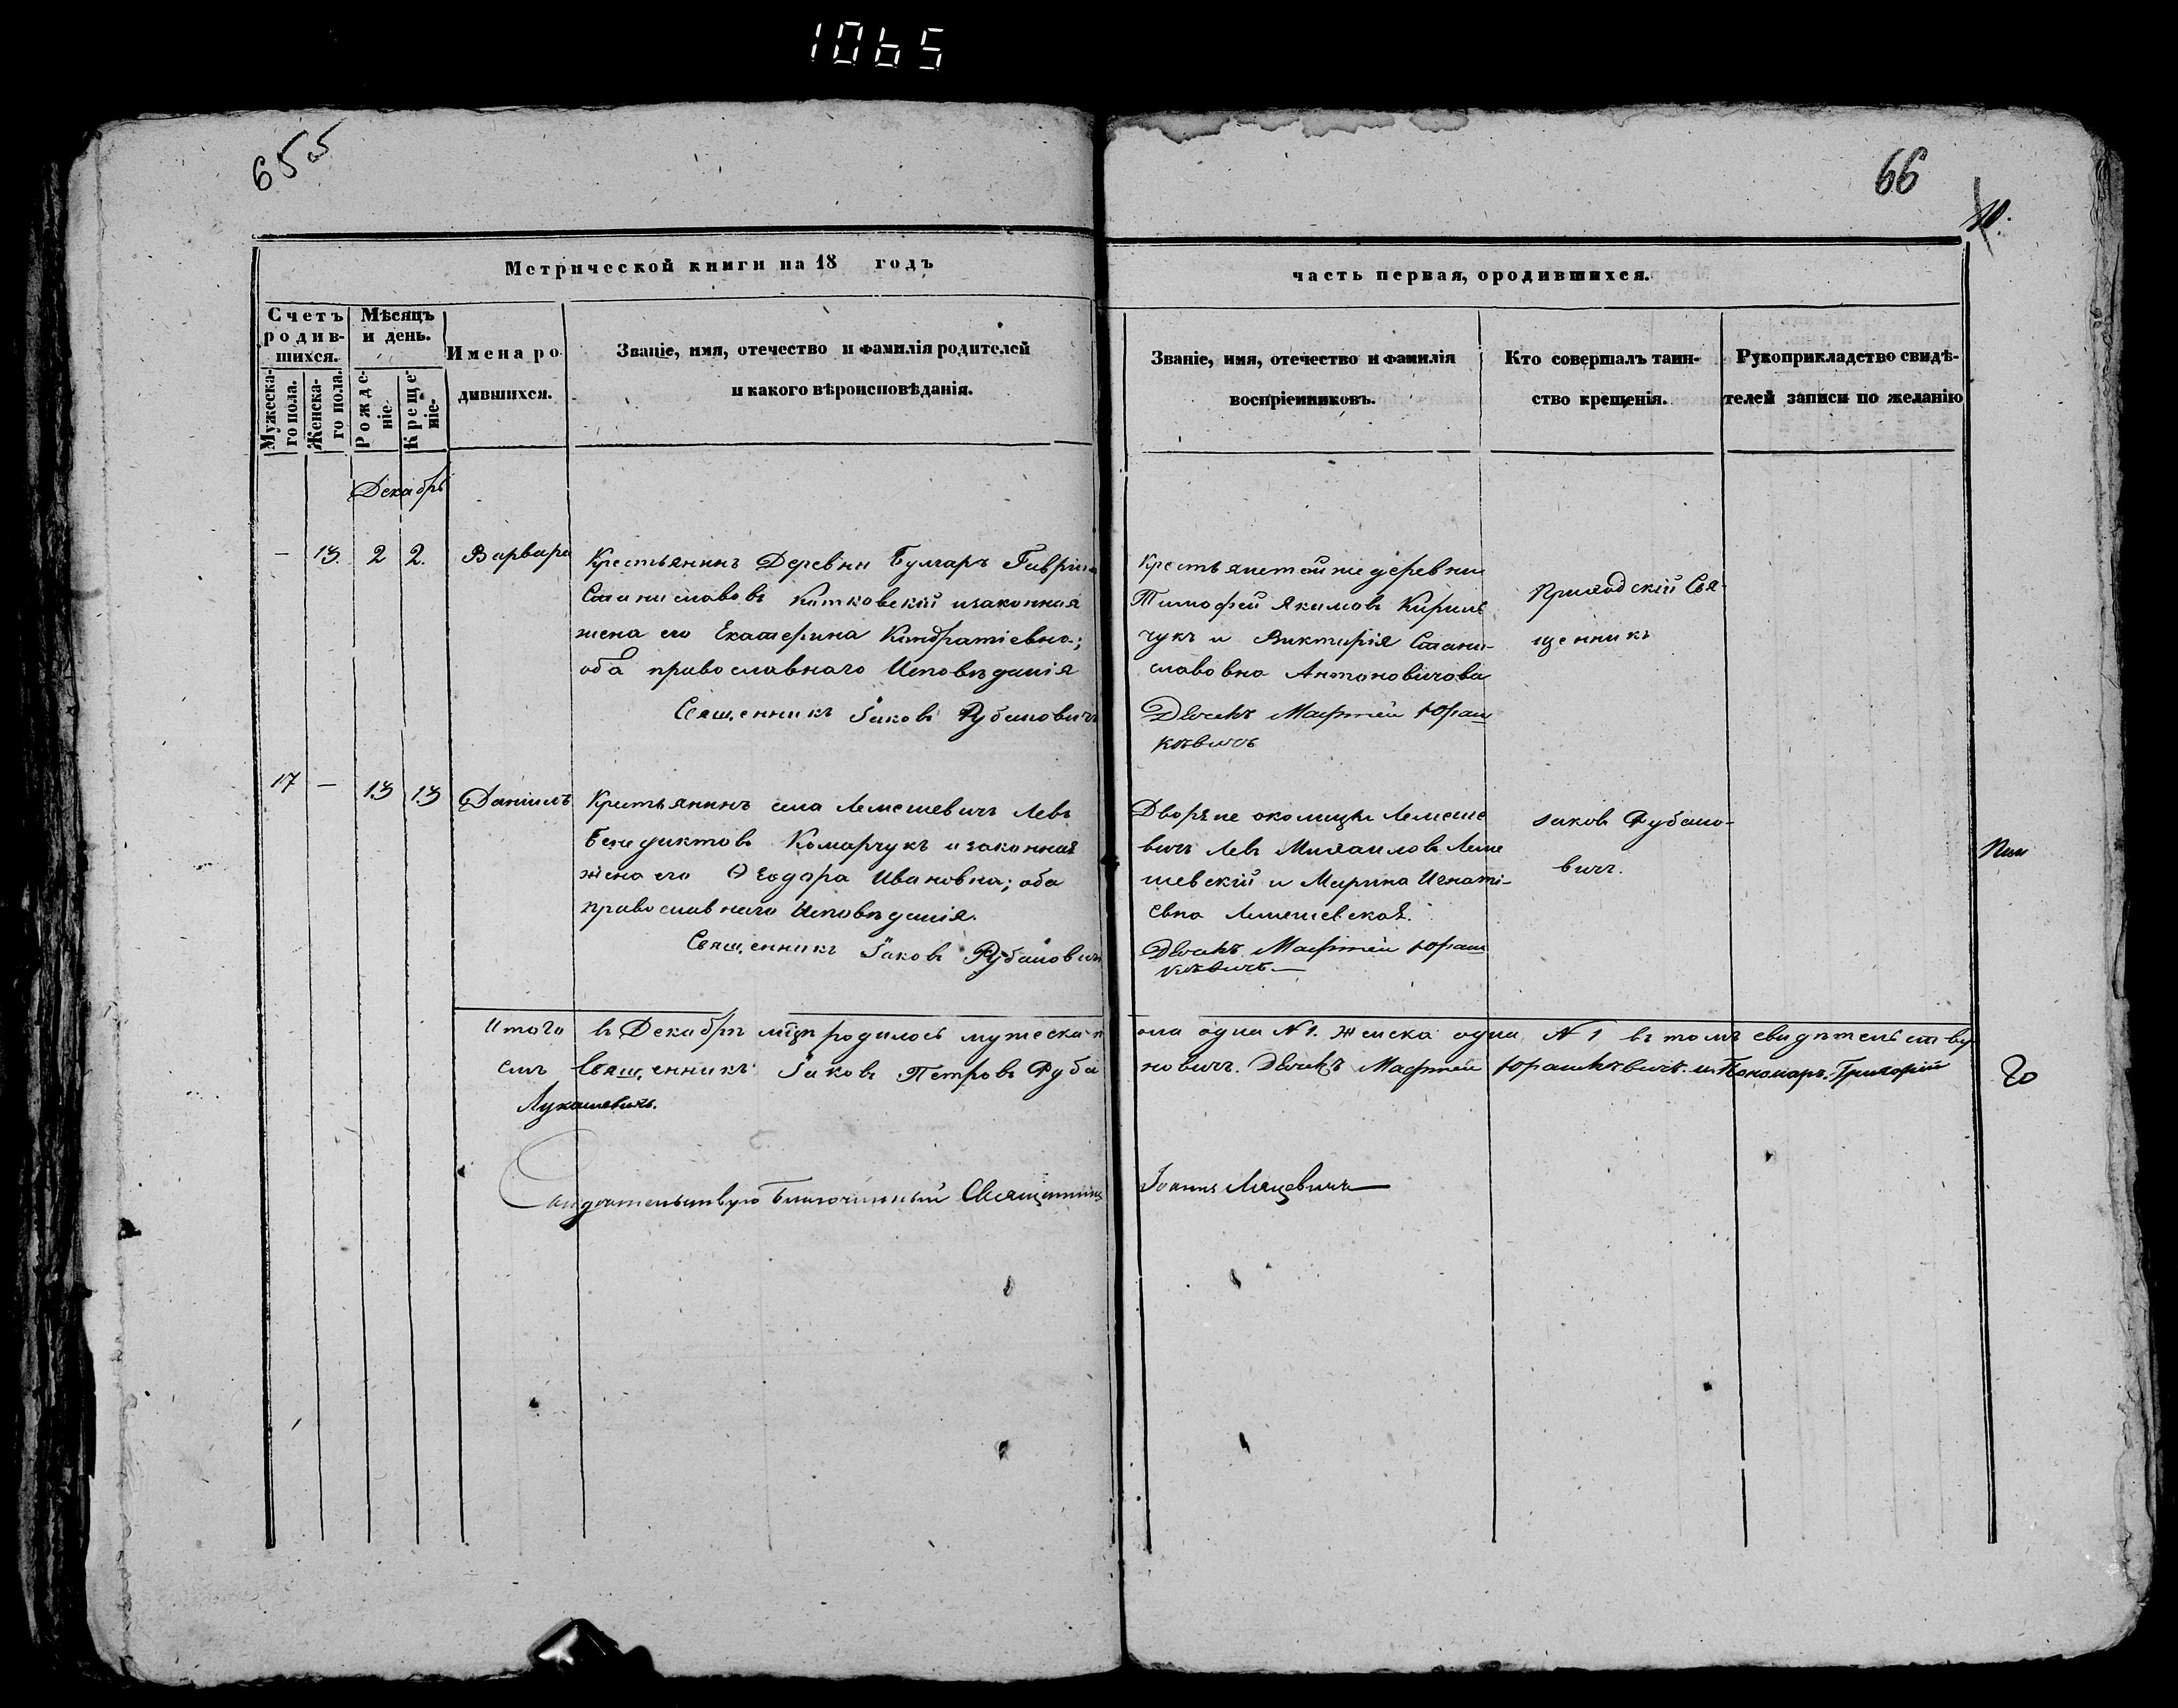 1065
65об
66
10.
Метрической книги на 18 годъ
часть первая, ородившихся.
Счетъ родив-шихся.
Мѣсяцъ и день.
Мужеска-го пола.
Женска-го пола.
Рожде-ніе.
Креще-ніе.
Имена ро-
дившихся.
Званіе, имя, отечество и фамилія родителей
и какого вѣроисповѣданія.
Званіе, имя, отечество и фамилія
воспріемниковъ.
Кто совершалъ таин-
ство крещенія.
Рукоприкладство свидѣ-
телей записи по желанію
Декабрь
— 13. 2 2. Варвара
Крестьянинъ Деревни Булгаръ Гаврило
Станиславовъ Котковскій изаконная
жена его Екатерина Кондратіевна;
оба православнаго Исповѣданія
Священникъ Іаковъ Рубановичъ
Крестьяне той же деревни
Тимофей Якимовъ Кирил
чукъ и Викторія Стани-
славовна Антоновичова
Дьячекъ Мафтей Юраш
кѣвичъ
Приходскій Свя-
щенникъ
17 — 13 13 Даніилъ
Крестьянинъ села Лемешевичъ Левъ
Бенедиктовъ Комарчукъ изаконная
жена его Ѳеодора Ивановна; оба
православнаго Исповѣданія.
Священникъ Іаковъ Рубановичъ
Дворяне околицы Лемеше
вичъ Левъ Михаиловъ Леме
шевскій и Марина Игнаті-
евна Лемешевская.
Дьячекъ Мафтей Юраш
кѣвичъ.—
Іаковъ Рубано-
вичъ.
Итого въ Декабрѣ мцѣ родилось мужеска п
ола одна №1. Женска одна №1 въ томъ свидѣтельству
емъ Священникъ Іаковъ Петровъ Руба
новичъ. Дьячекъ Мафтей Юрашкѣвичъ. и Пономарь Григорій
Лукашевичъ.
Свидѣтельствую Благочинный Священникъ
Іоаннъ Ляцевичъ